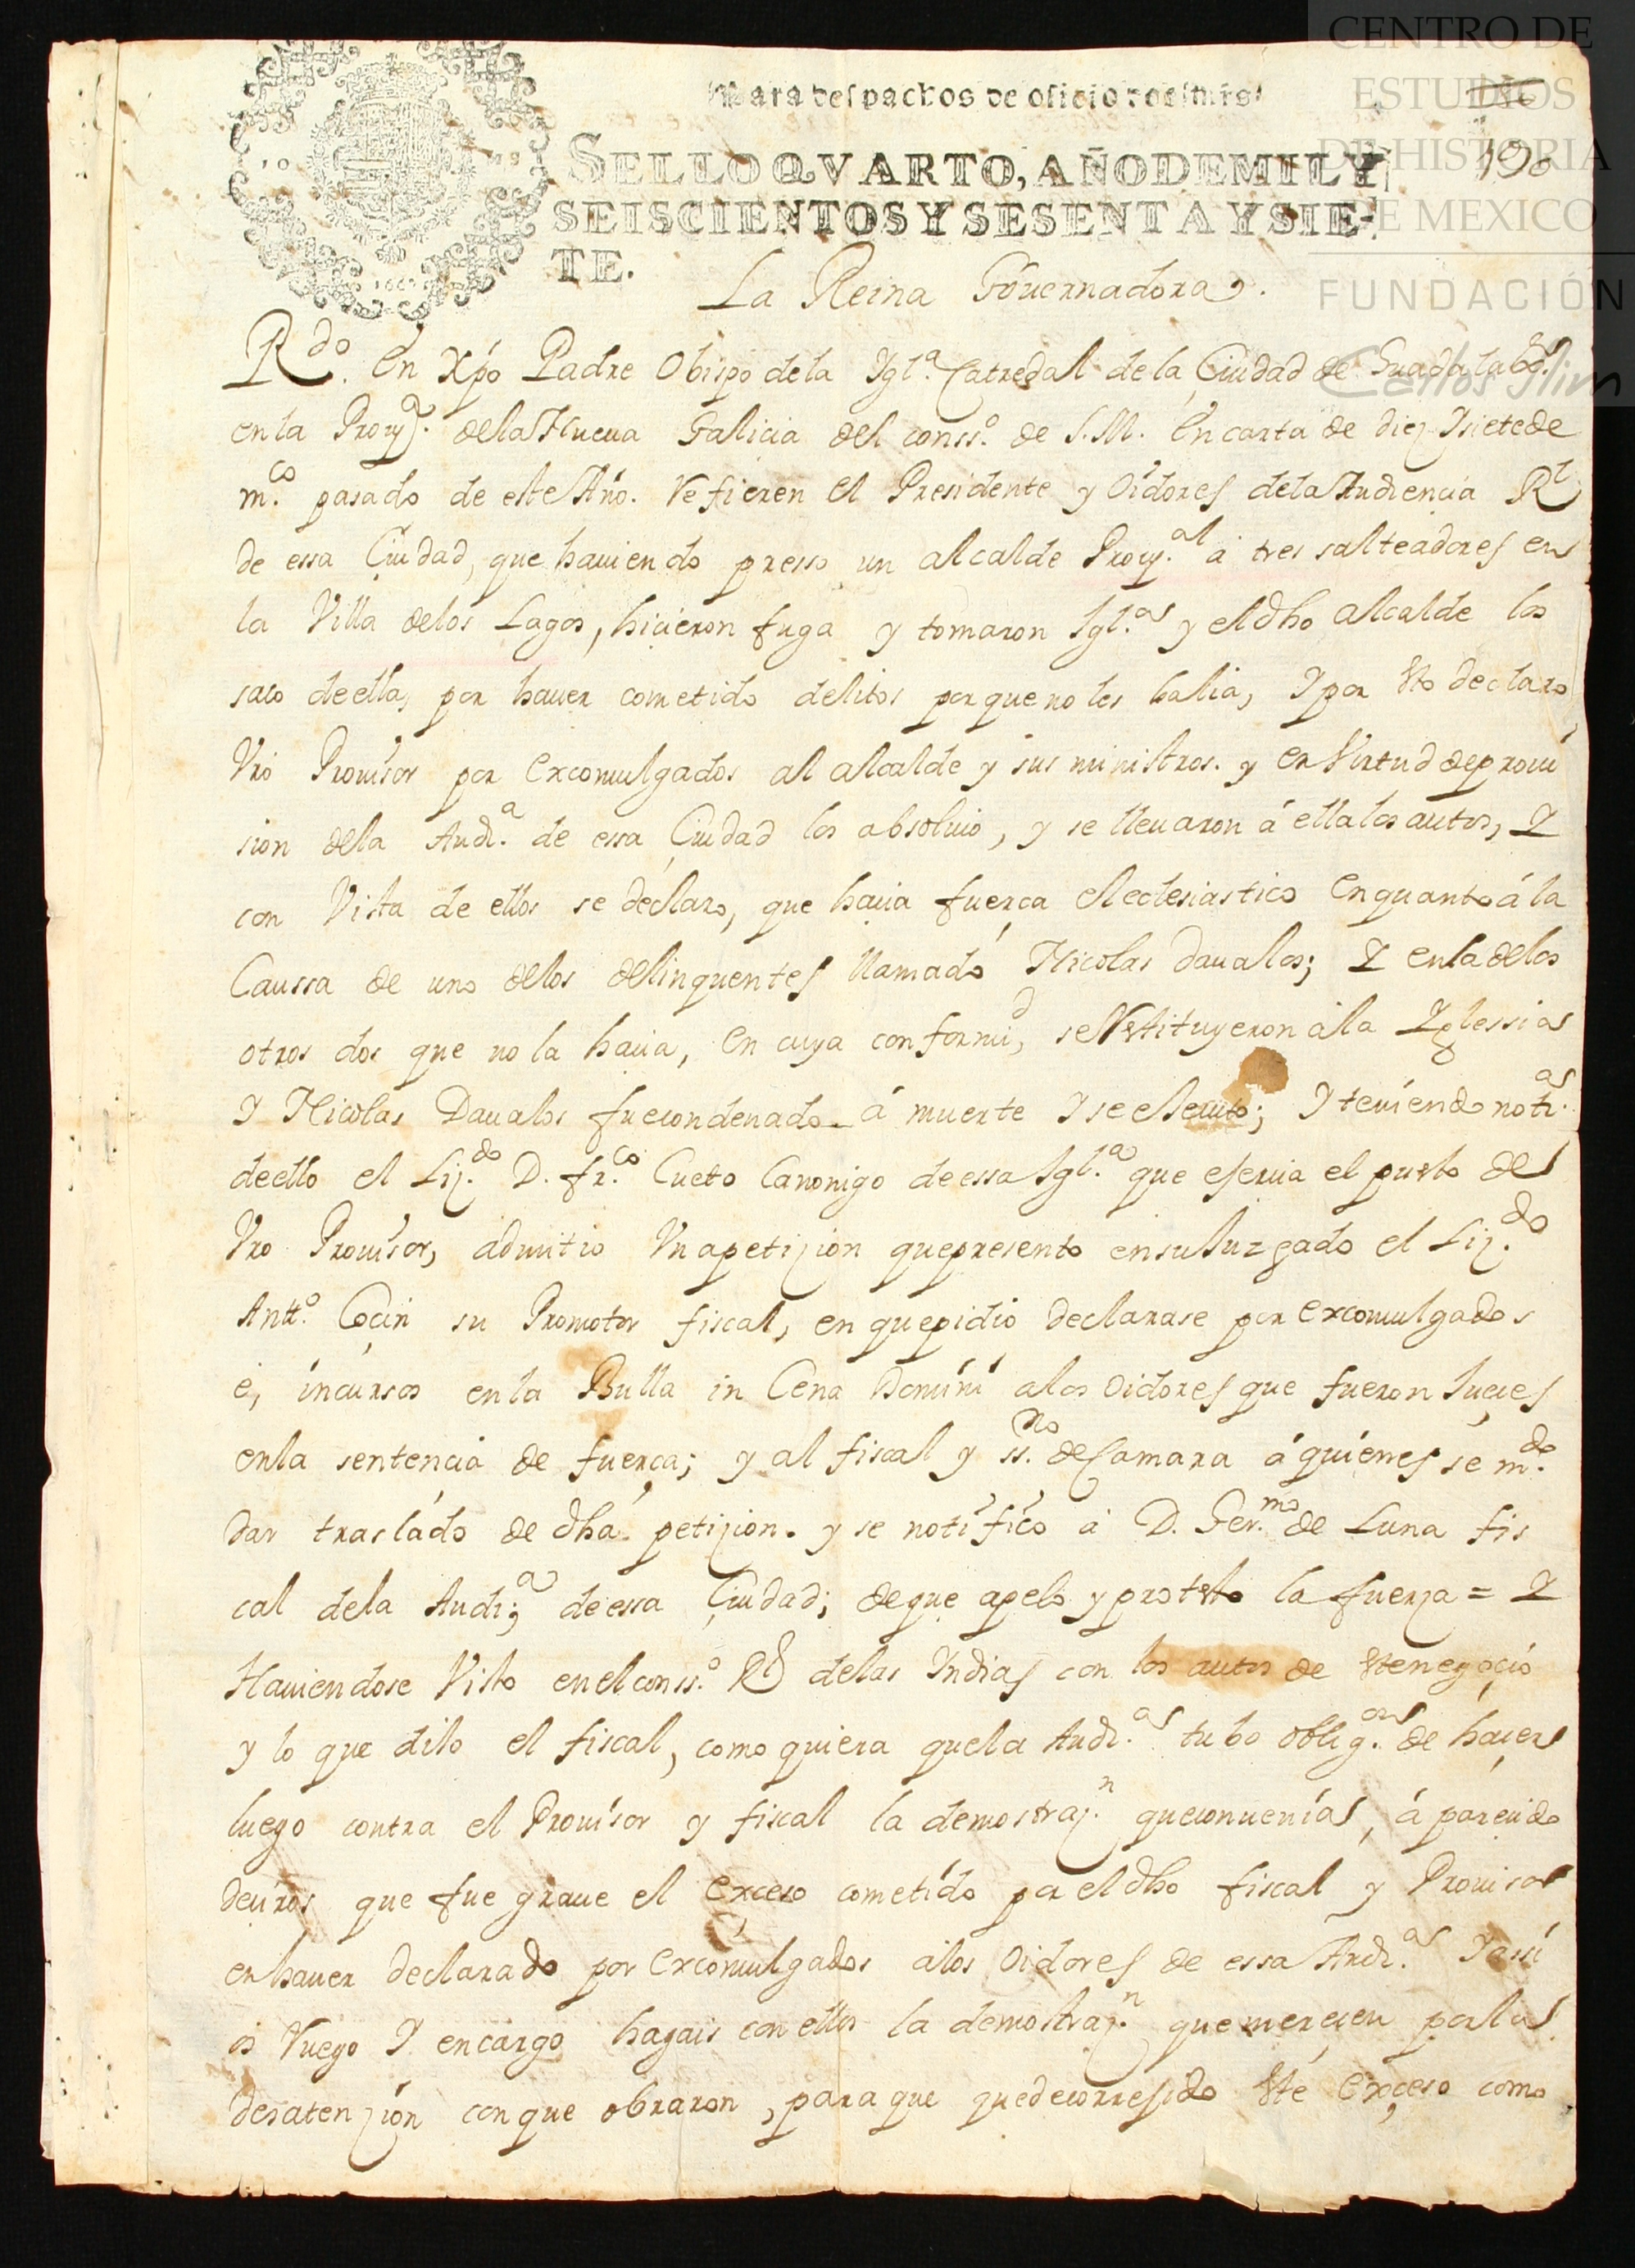 Para despachos de oficio dos mrs
SELLO QVARTO, AÑO DE MIL Y
SEISCIENTOS Y SESENTA Y SIE-
TE.
196
CENTRO DE
ESTUDIOS
DE HISTORIA
DE MEXICO
FUNDACIÓN
Carlos Slim
La Reina Gouernadora.
Rdo. en Xpo Padre Obispo de la Igl.a Catredal de la Ciudad de Guadalax.a
en la Prou.a de la Nueua Galicia del conss.o de S.M. en carta de diez y siete de
m.co pasado de este Año. Refieren el Presidente y Oidores de la Audiencia Rl
de essa Ciudad, que hauiendo presso un alcalde Prou.al a tres salteadores en
la Villa de los Lagos, hicieron fuga y tomaron Igl.a y el dho alcalde los
saco de ella, por hauer cometido delitos porque no les balia, y por esto declaro
Vro Prouisor por excomulgados al alcalde y sus ministros. y en Virtud de proui
sion de la Audi.a de essa Ciudad los absoluio, y se lleuaron á ella los autos, Y
con Vista de ellos se declaro, que hauia fuerça el eclesiastico en quanto á la
Caussa de uno de los delinquentes llamado Nicolas Daualos; Y en la de los
otros dos que no la hauia, en cuya conformid, se Restituyeron á la Yglessia
Y Nicolas Daualos fue condenado á muerte y se executo; Y teniendo notia.
de ello el Liz.do D. fr.co Cueto Canonigo de essa Igl.a que eseruia el puesto de
Vro Prouisor, admitio Una petizion que presento en su Iuzgado el Liz.do
Antt.o Cocin su Promotor fiscal, en que pidio declarase por excomulgados
e, incursos en la Bulla in Cena Domini a los Oidores que fueron Iueçes
en la sentencia de fuerça; y al fiscal y ss.no de Camara á quienes se m.do
dar traslado de dha petizion. y se notifico a D. Ger.mo de Luna fis
cal de la Audi.a de essa Ciudad; de que apelo y protesto la fuerza = Y
Hauiendose Visto en el conss.o Rl de las Indias con los autos de este negoçio
y lo que dixo el fiscal, como quiera que la Audi.a tubo oblig.on de haçer
luego contra el Prouisor y fiscal la demostraz.n que conuenia, á parecido
deciros que fue graue el exçeso cometido por el dho fiscal y Prouisor
en hauer declarado por excomulgados a los Oidores de essa Audi.a Y assi
os Ruego Y encargo hagais con ellos la demostraz.n que merecen por la
desatenzion con que obraron, para que quede corregido este Exçeso como